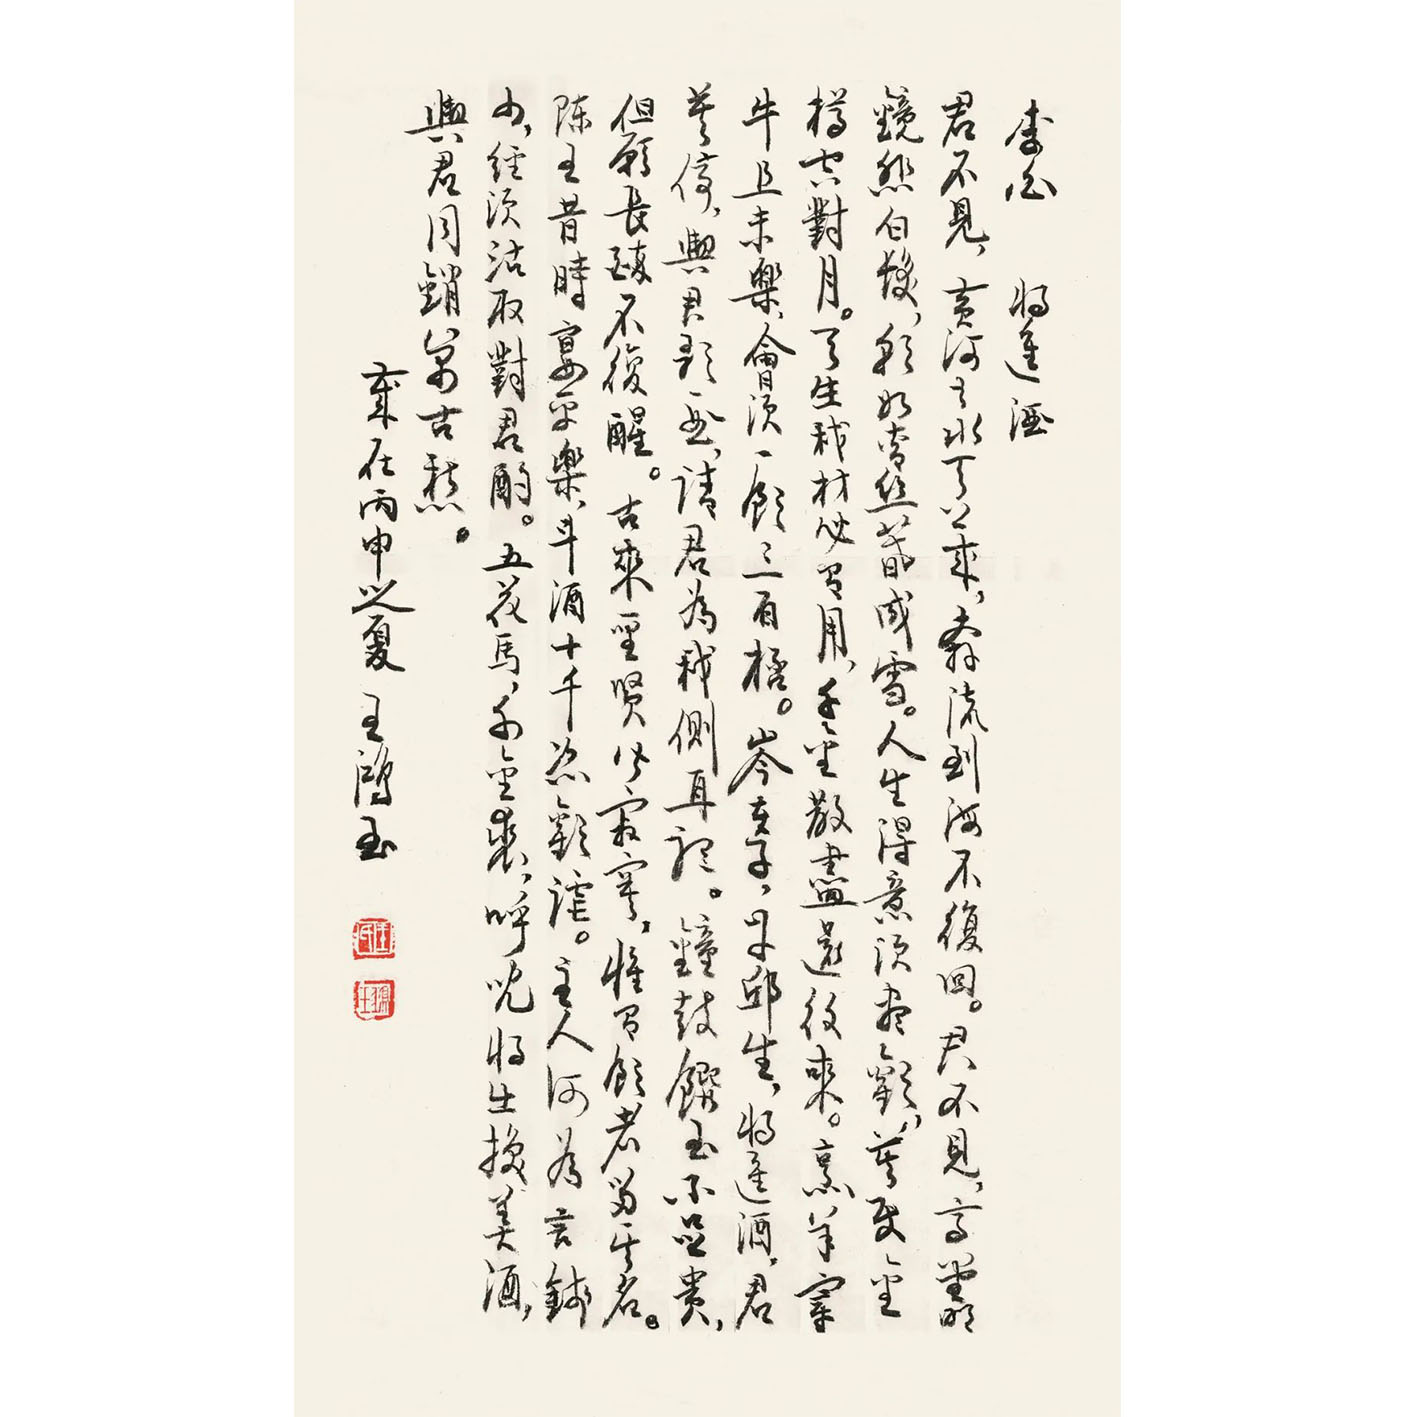 李白 將進酒
君不見,黃河之水天上來,奔流到海不復回。君不見,高堂明
鏡悲白髮,朝如青絲暮成雪。人生得意須盡歡,莫使金
樽空對月。天生我材必有用,千金散盡還復來。烹羊宰
牛且未樂,會須一飲三百杯。岑夫子,丹邱生,將進酒,君
莫停,與君歌一曲,請君為我側耳聽。鐘鼓饌玉不足貴,
但願長醉不復醒。古來聖賢皆寂寞,惟有飲者留其名。
陳王昔時宴平樂,斗酒十千恣歡謔。主人何為言錢
少,徑須沽取對君酌。五花馬,千金裘,呼兒將出換美酒,
與君同銷萬古愁。
歲在丙申之夏 王鴻玉